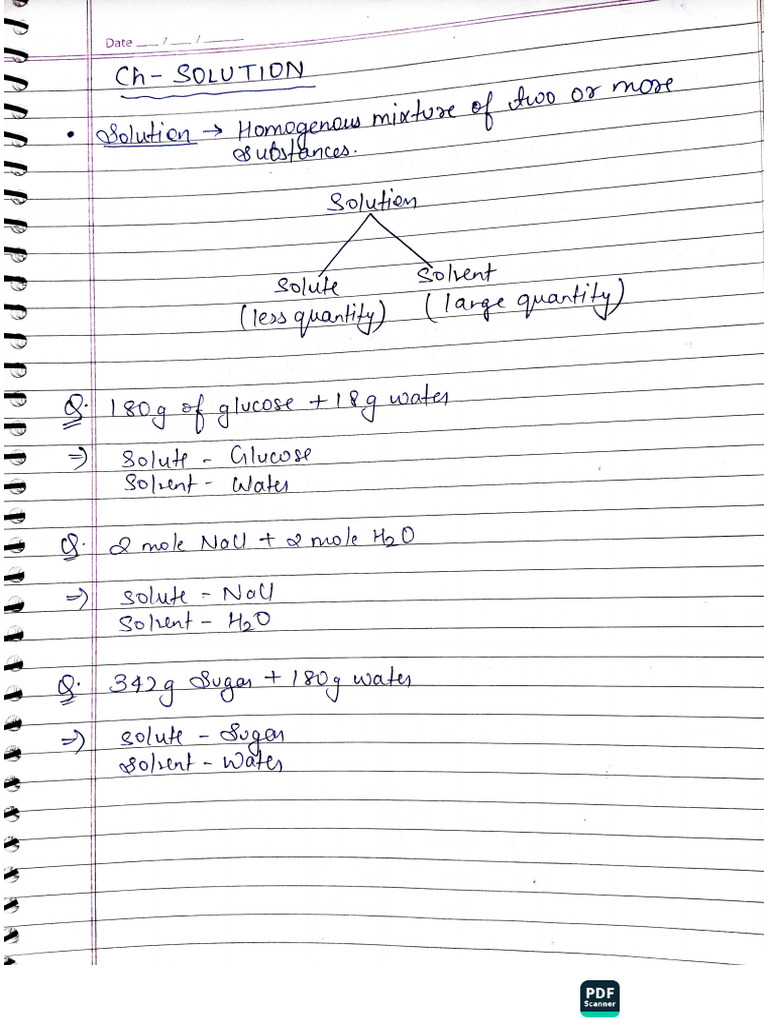 Date __ / __ / ____
Ch - SOLUTION
• Solution → Homogenous mixture of two or more
substances.
Solution
Solute Solvent
(less quantity) (large quantity)
Q. 180g of glucose + 18g water
⇒ Solute - Glucose
Solvent - Water
Q. 2 mole NaCl + 2 mole H₂O
⇒ Solute - NaCl
Solvent - H₂O
Q. 342g Sugar + 180g water
⇒ Solute - Sugar
Solvent - Water
PDF
Scanner